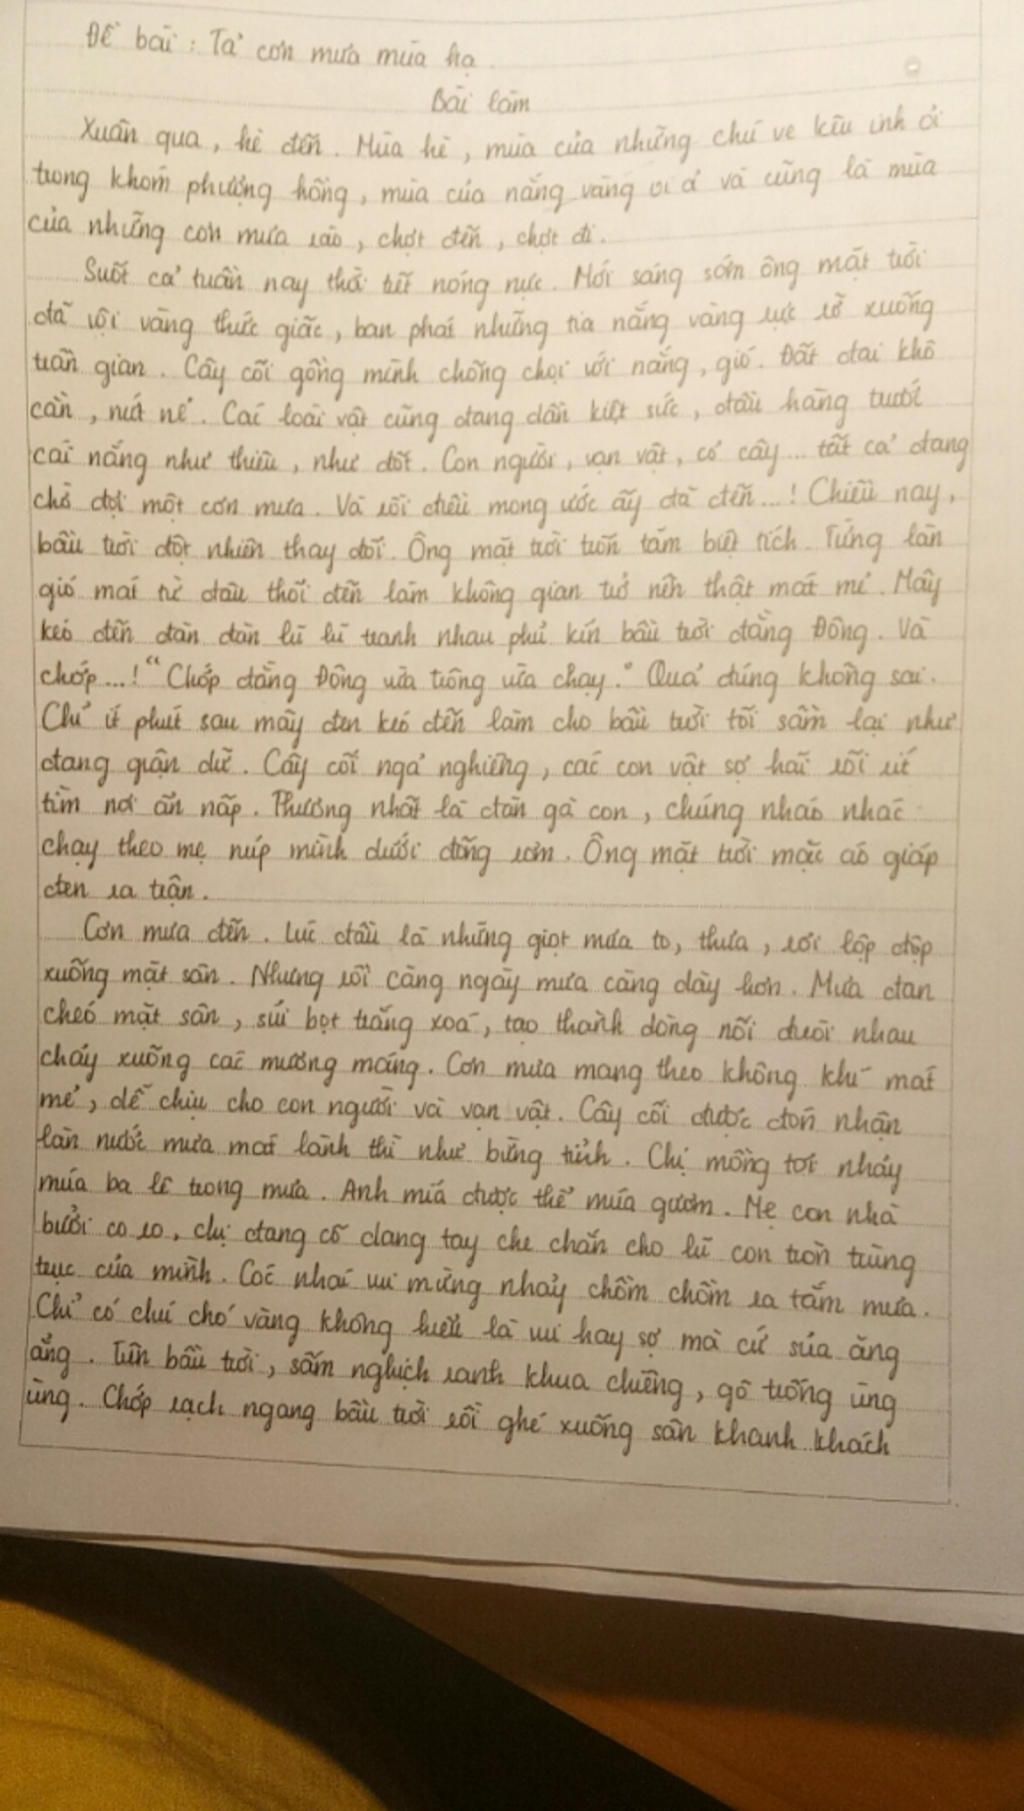 Đề bài: Tả cơn mưa mùa hạ.
Bài làm
Xuân qua, hè đến. Mùa hè, mùa của những chú ve kêu inh ỏi
trong khóm phượng hồng, mùa của nắng vàng oi ả và cũng là mùa
của những cơn mưa rào, chợt đến, chợt đi.
Suốt cả tuần nay thời tiết nóng nực. Mới sáng sớm ông mặt trời
đã vội vàng thức giấc, ban phát những tia nắng vàng rực rỡ xuống
trần gian. Cây cối gồng mình chống chọi với nắng, gió. Đất đai khô
cằn, nứt nẻ. Các loài vật cũng đang dần kiệt sức, đầu hàng trước
cái nắng như thiêu, như đốt. Con người, vạn vật, cỏ cây... tất cả đang
chờ đợi một cơn mưa. Và rồi điều mong ước ấy đã đến...! Chiều nay,
bầu trời đột nhiên thay đổi. Ông mặt trời trốn tăm biệt tích. Từng làn
gió mát từ đâu thổi đến làm không gian trở nên thật mát mẻ. Mây
kéo đến đàn đàn lũ lũ tranh nhau phủ kín bầu trời đằng Đông. Và
chớp...! "Chớp đằng Đông vừa trông vừa chạy." Quả đúng không sai.
Chỉ ít phút sau mây đen kéo đến làm cho bầu trời tối sầm lại như
đang giận dữ. Cây cối ngả nghiêng, các con vật sợ hãi rối rít
tìm nơi ẩn nấp. Thương nhất là đàn gà con, chúng nháo nhác
chạy theo mẹ núp mình dưới đống rơm. Ông mặt trời mặc áo giáp
đen ra trận.
Cơn mưa đến. Lúc đầu là những giọt mưa to, thưa, rơi lộp độp
xuống mặt sân. Nhưng rồi càng ngày mưa càng dày hơn. Mưa đan
chéo mặt sân, sủi bọt trắng xoá, tạo thành dòng nối đuôi nhau
chảy xuống các mương máng. Cơn mưa mang theo không khí mát
mẻ, dễ chịu cho con người và vạn vật. Cây cối được đón nhận
làn nước mưa mát lành thì như bừng tỉnh. Chị mồng tơi nhảy
múa ba lê trong mưa. Anh mía được thể múa gươm. Mẹ con nhà
bưởi co ro, chị đang cố dang tay che chắn cho lũ con tròn trùng
trục của mình. Cóc nhái vui mừng nhảy chồm chồm ra tắm mưa.
Chỉ có chú chó vàng không hiểu là vui hay sợ mà cứ sủa ăng
ẳng. Trên bầu trời, sấm nghịch ranh khua chiêng, gõ trống ùng
ùng. Chớp rạch ngang bầu trời rồi ghé xuống sân khanh khách